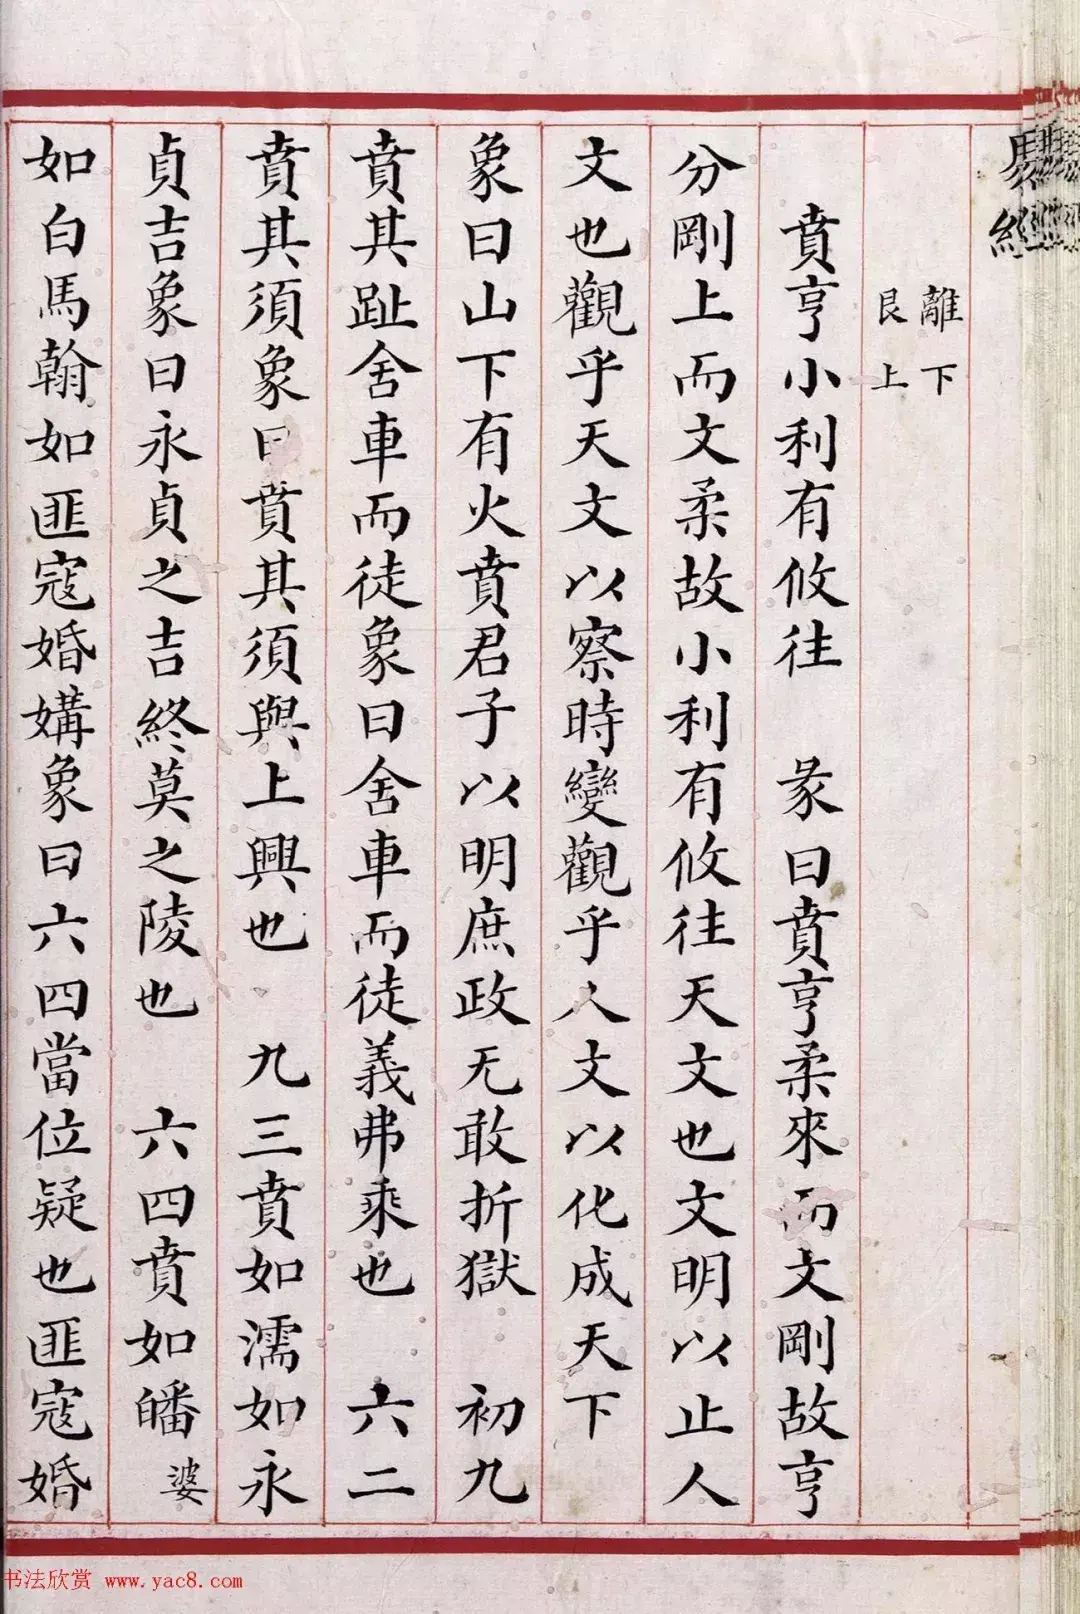 易經
離下
艮上
賁亨小利有攸往　彖曰賁亨柔來而文剛故亨
分剛上而文柔故小利有攸往天文也文明以止人
文也觀乎天文以察時變觀乎人文以化成天下
象曰山下有火賁君子以明庶政无敢折獄　初九
賁其趾舍車而徒象曰舍車而徒義弗乘也　六二
賁其須象曰賁其須與上興也　九三賁如濡如永
貞吉象曰永貞之吉終莫之陵也　六四賁如皤婆
如白馬翰如匪寇婚媾象曰六四當位疑也匪寇婚
书法欣赏 www.yac8.com